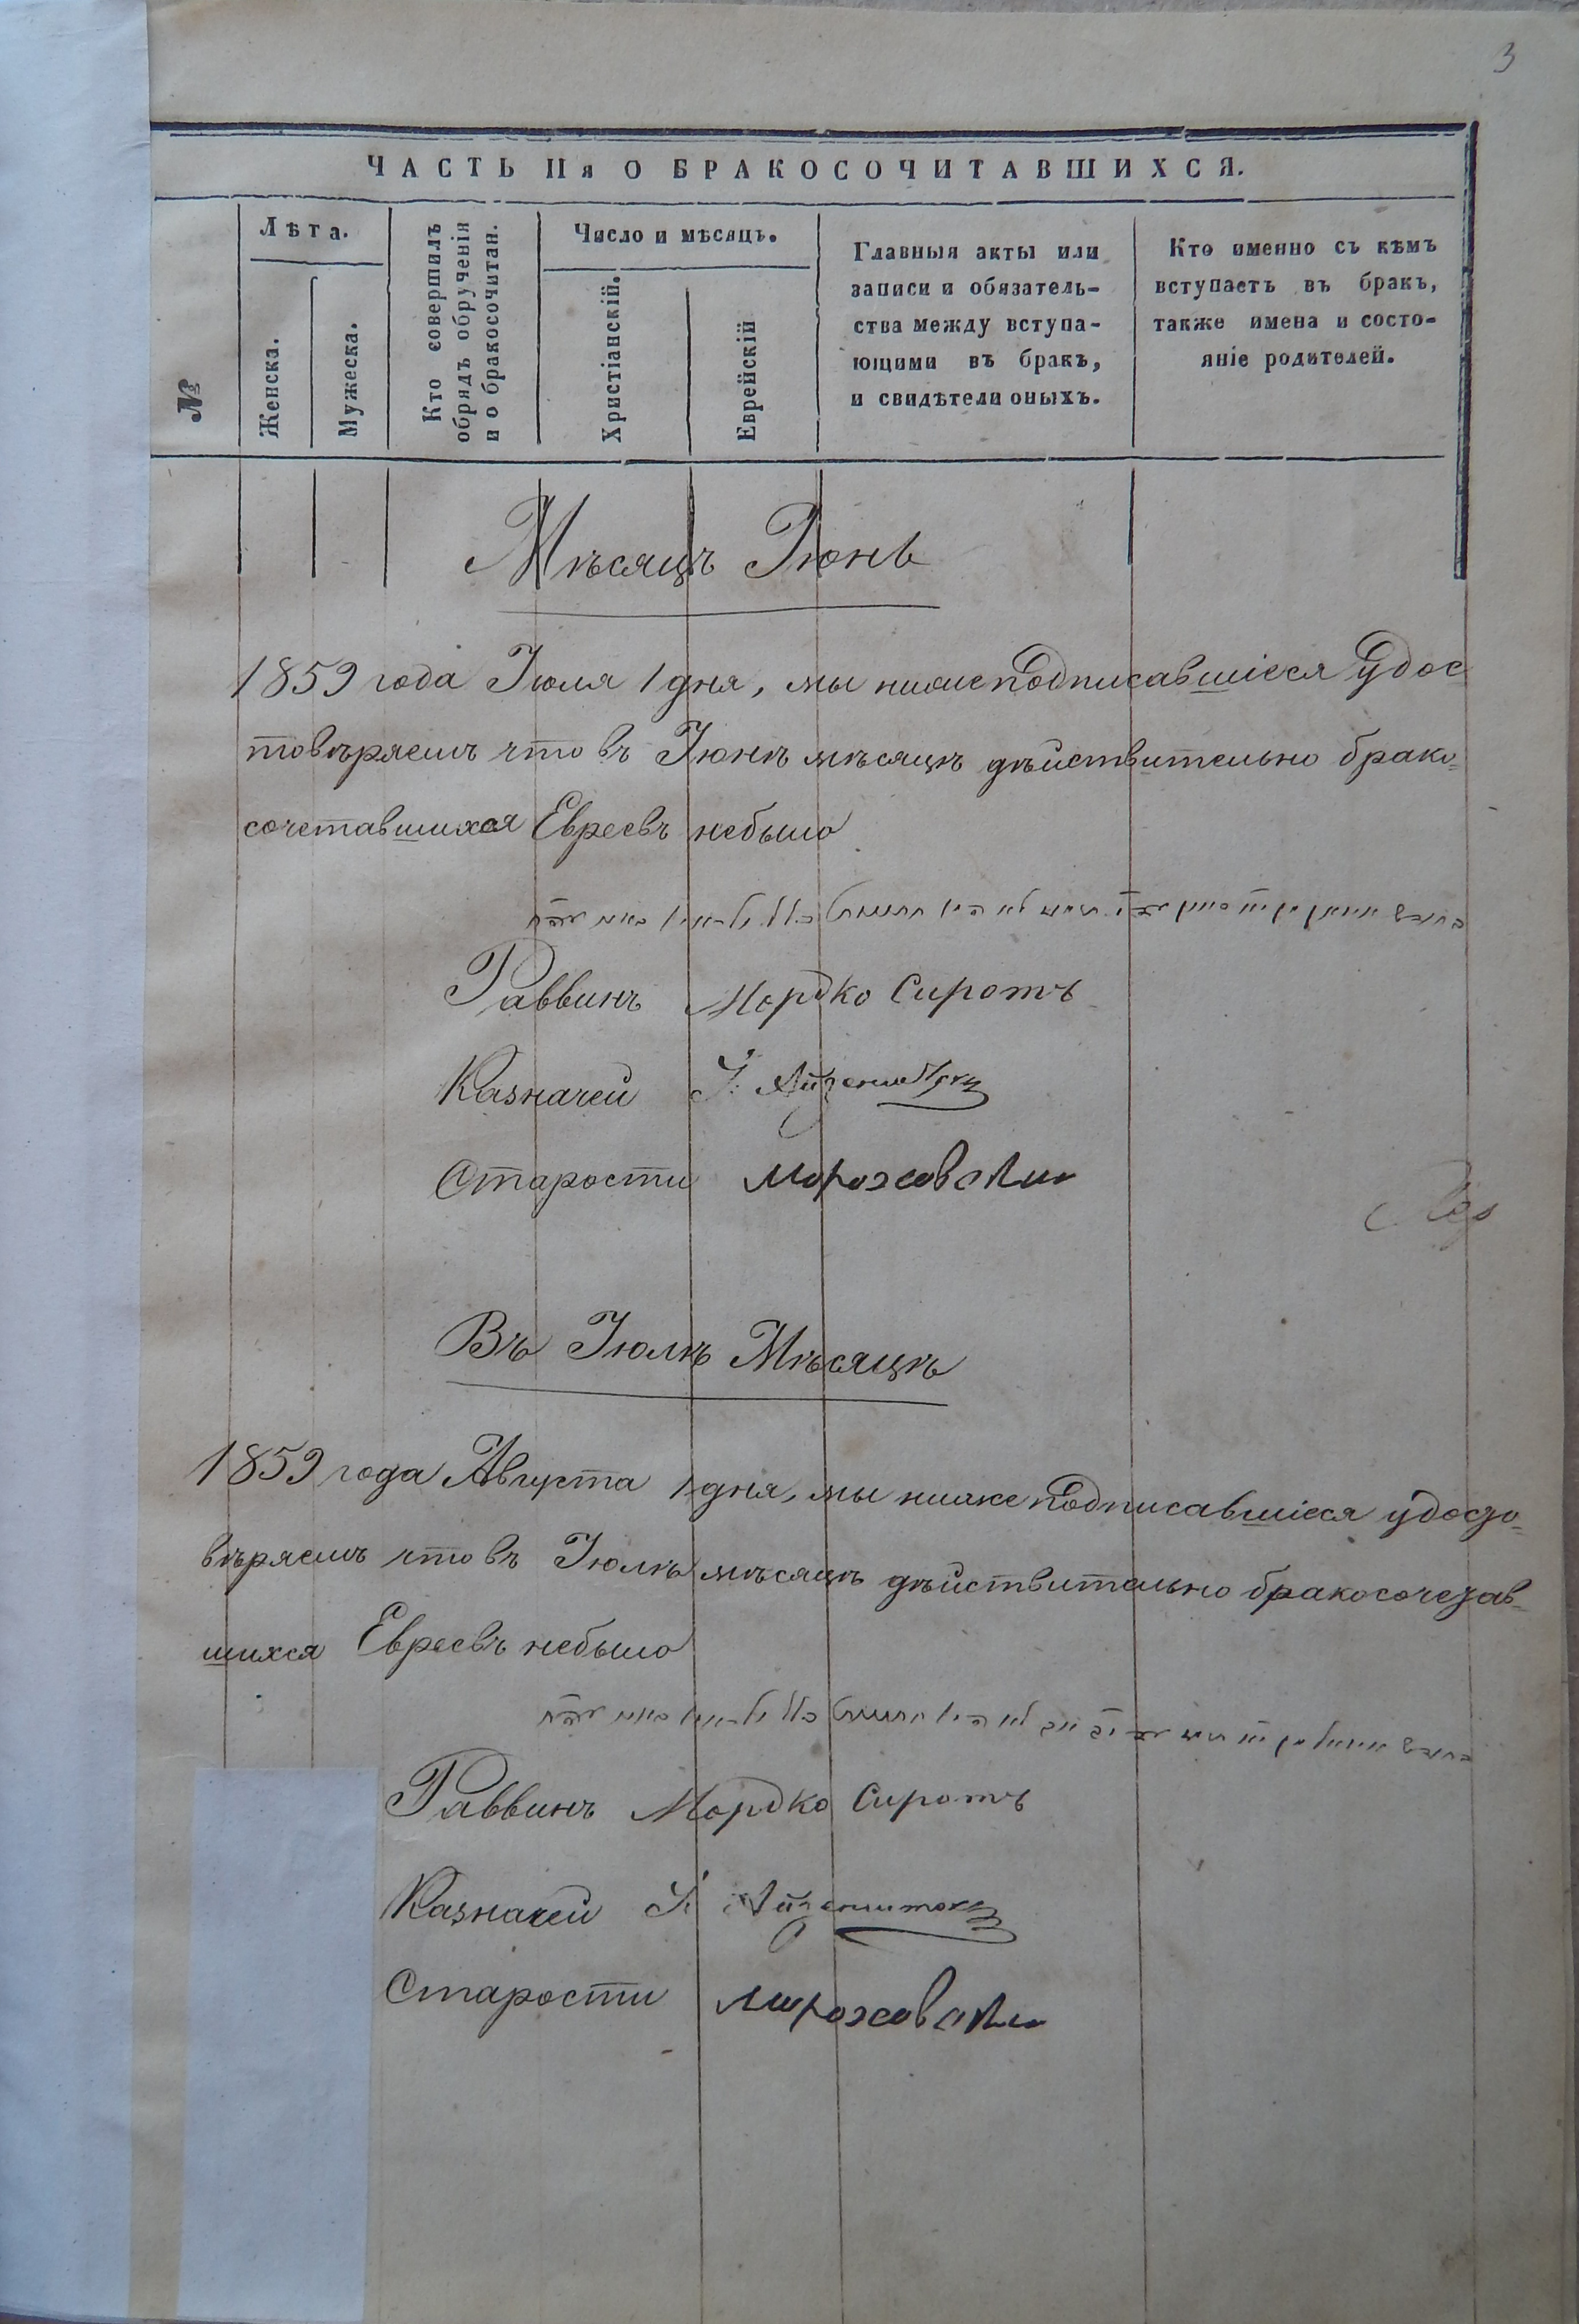 3
ЧАСТЬ IIя О БРАКОСОЧИТАВШИХСЯ.
№
Лѣта.
Женска.
Мужеска.
Кто совершилъ
обрядъ обрученія
и о бракосочитан.
Число и мѣсяцъ.
Христіанскій.
Еврейскій
Главныя акты или
записи и обязатель-
ства между вступа-
ющими въ бракъ,
и свидѣтели оныхъ.
Кто именно съ кѣмъ
вступаетъ въ бракъ,
также имена и состо-
яніе родителей.
Мѣсяцъ Іюнь
1859 года Іюля 1 дня, мы нижеподписавшіеся удос
товѣряемъ что въ Іюнѣ мѣсяцѣ дѣйствительно брако=
сочетавшихся Евреевъ небыло
Раввинъ Мордко Сиротъ
Казначей І. Айзенштокъ
Старости
Въ Іюлѣ Мѣсяцѣ
1859 года Августа 1 дня, мы нижеподписавшіеся удосто=
вѣряемъ что въ Іюлѣ мѣсяцѣ дѣйствительно бракосочетав=
шихся Евреевъ небыло
Раввинъ Мордко Сиротъ
Казначей І. Айзенштокъ
Старости